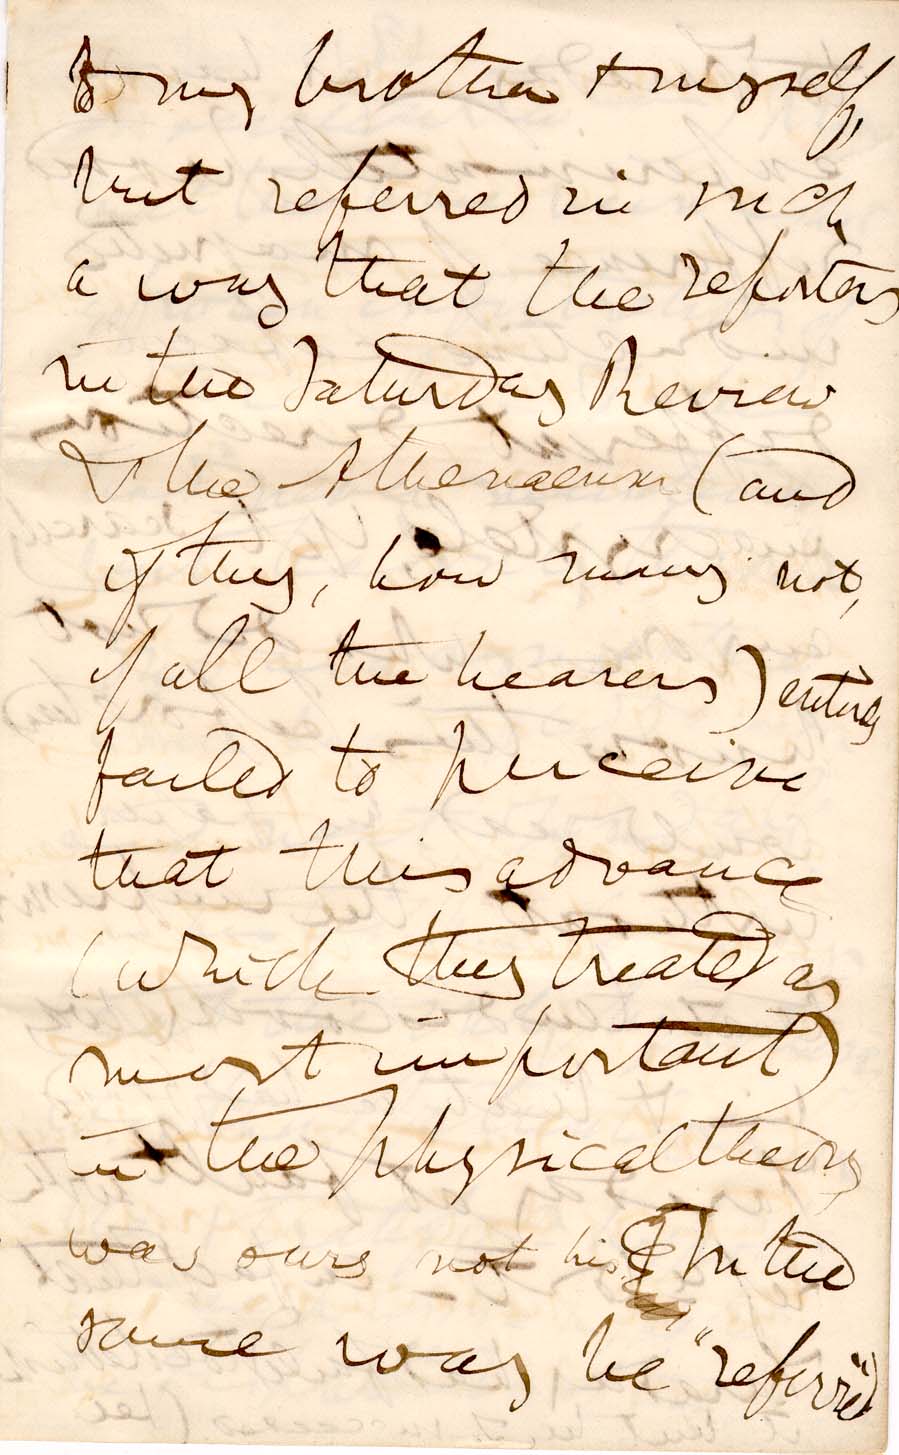 to my brother & myself,
but referred in such
a way that the reporters
in the Saturday Review
& the Athenaeum (and
if they, how many not,
if all the hearers) entirely
failed to perceive
that this advance
(which they treated as
most important)
in the physical theory
was ours not his. In the
same way he "referred"